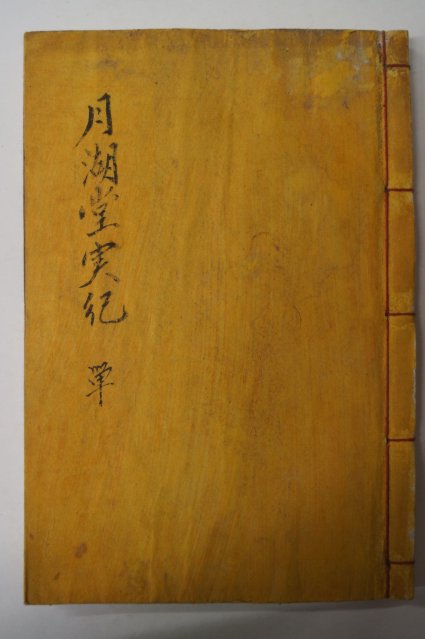 月湖堂実紀 単